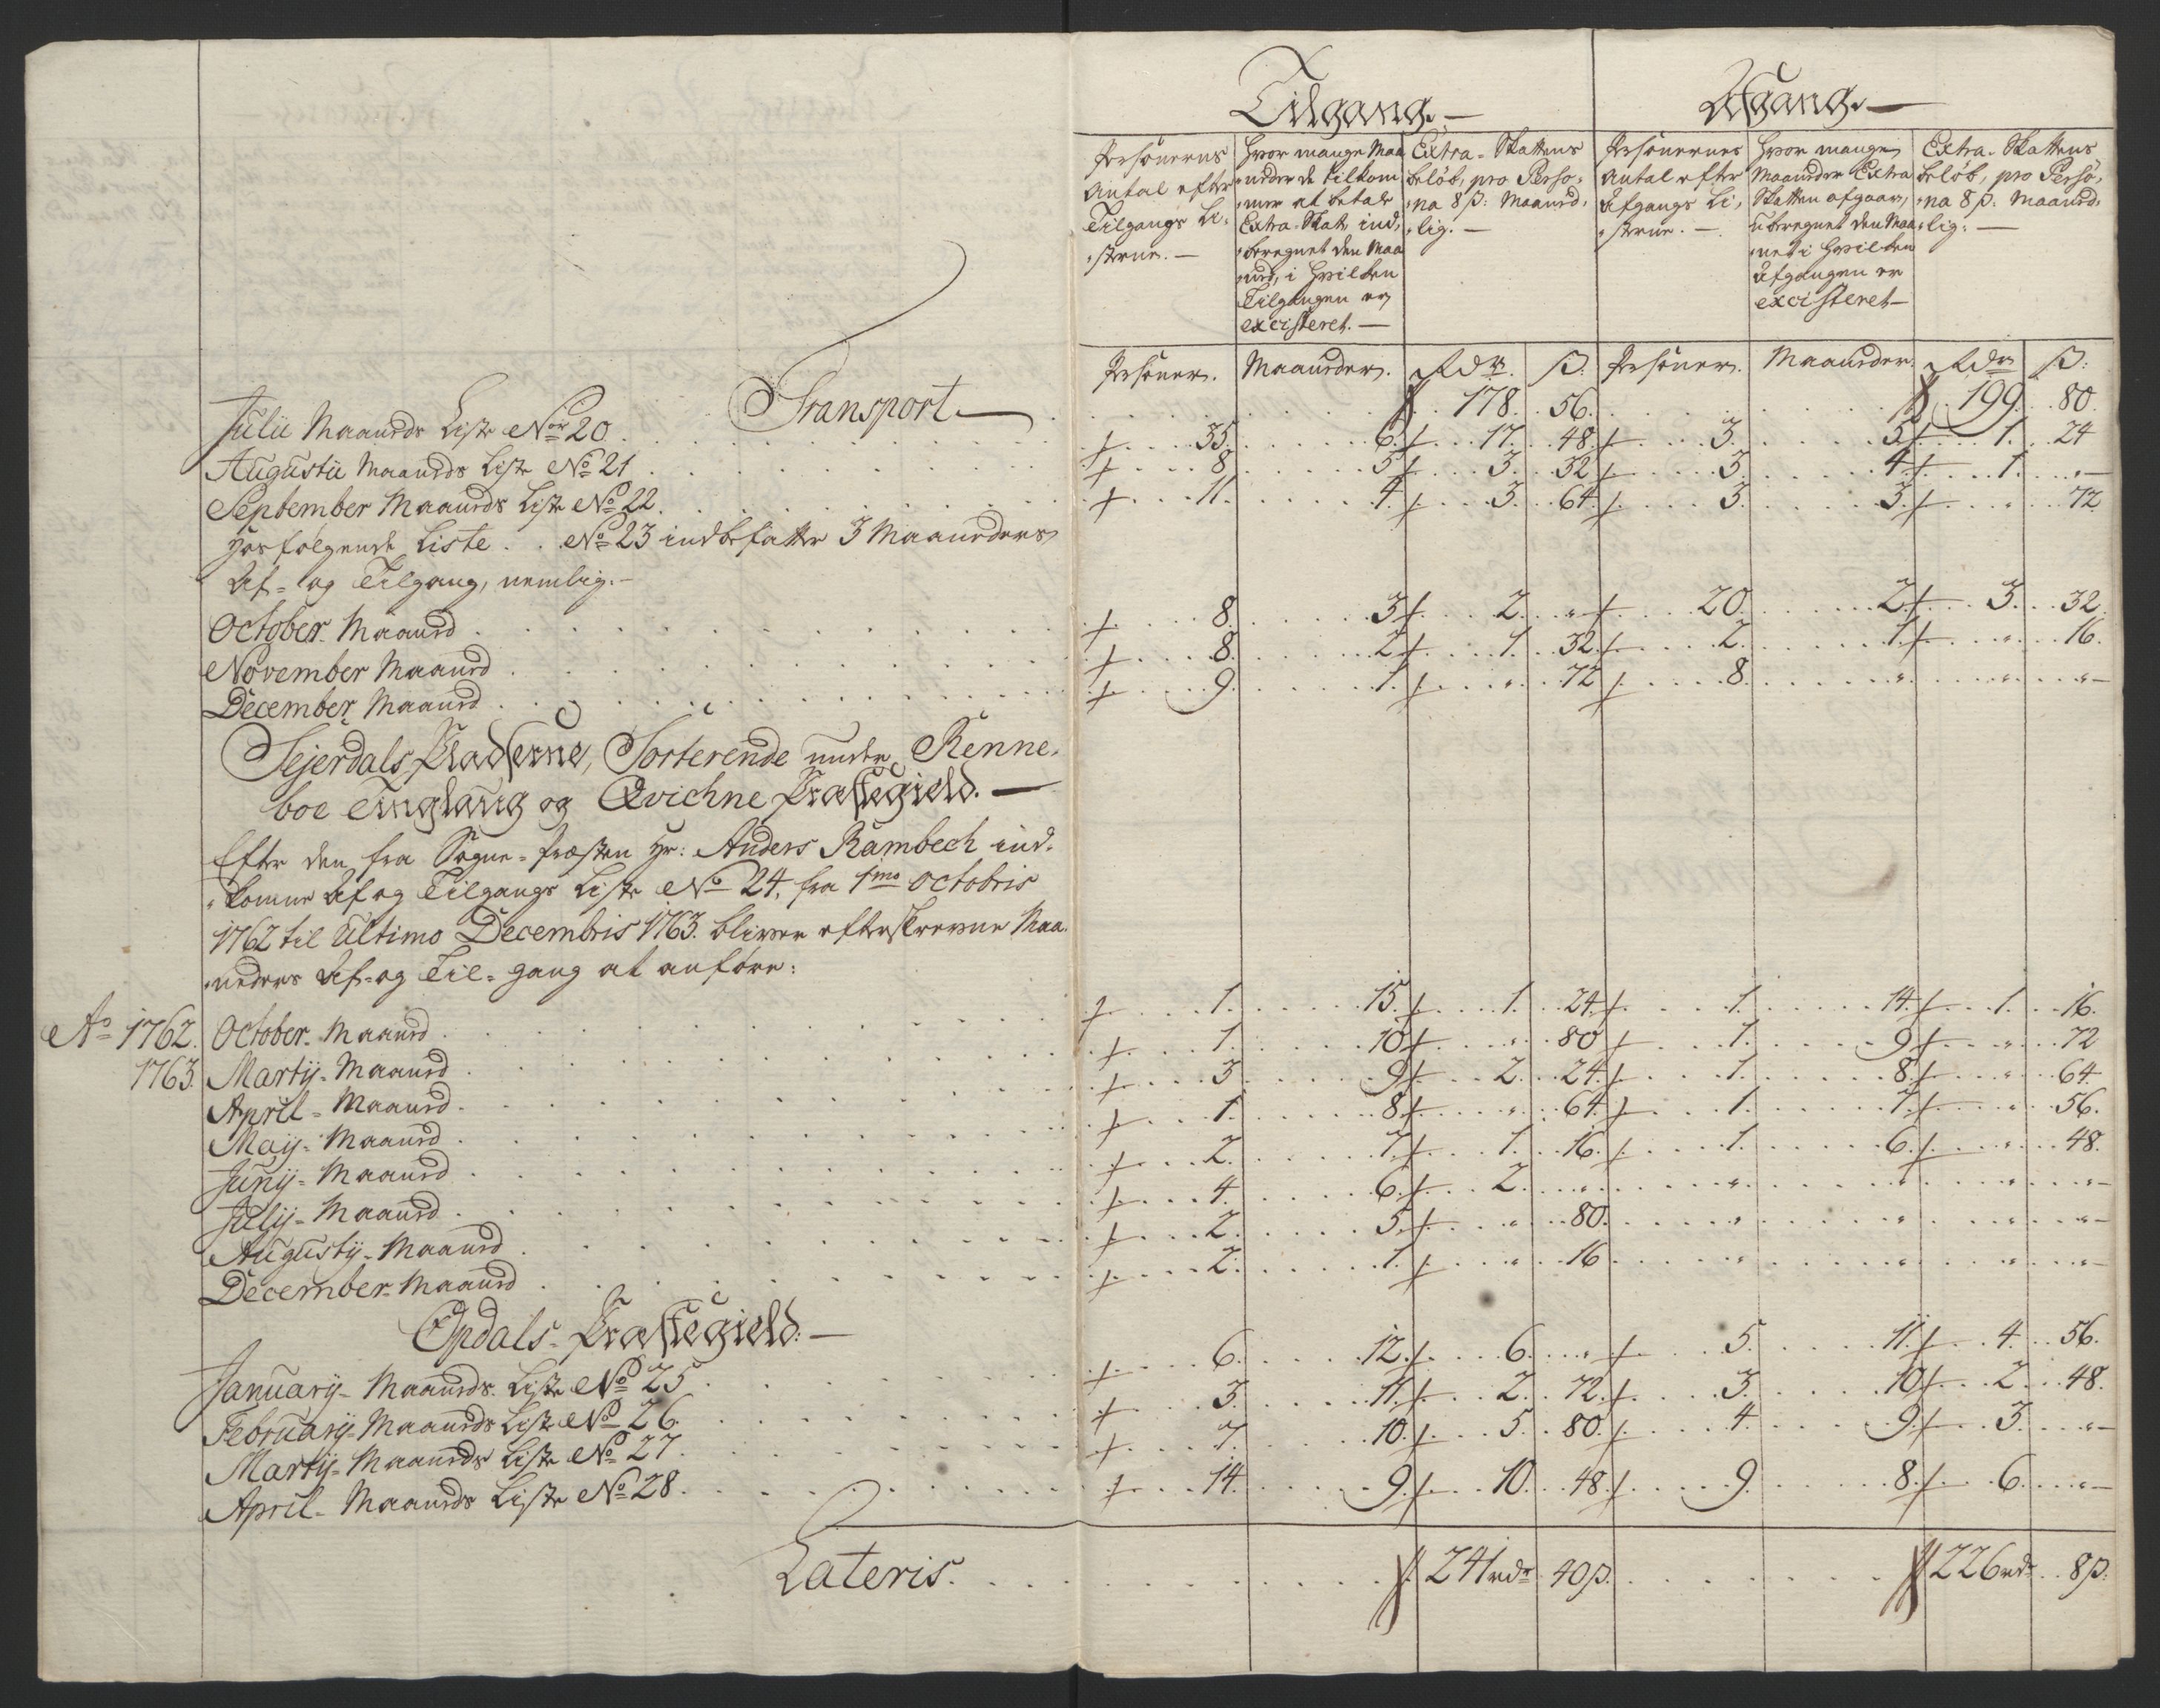 Tilgang.
Afgang.
Persōnerns Antal efter Tilgangs Listerne. —
Hvor mange Maaneder de tilkommer at betale Extra-Skatt, indberegnet den Maaned, i hvilken Tilgangen er excisteret. —
Extra-Skattens beløb, pro Persona 8 ß: Maanedlig. —
Persōnernes Antal efter Afgangs Listerne. —
Hvor mange Maaneder Extra Skatten afgaar, uberegnet den Maanet i hvilken Afgangen er excisteret —
Extra-Skattens beløb, pro Persona 8 ß. Maanedlig: —
Persōner. Maaneder. Rdr. ß. Persōner. Maaneder. Rdr ß:
Transport — 178. 56. 199. 80.
Julii Maaneds Liste No 20 35. 6. 17. 48. 3. 5. 1. 24
Augustii Maaneds Liste No 21 8. 5. 3. 32. 3. 4. 1. " —
September Maaneds Liste No 22. 11. 4. 3. 64. 3. 3. " 72
Hosfølgende Liste . . No 23 indbefatter 3 Maaneders
Af- og Tilgang, nemlig. —
October Maaned 8. 3. 2. " 20. 2. 3. 32.
November Maaned 8. 2. 1. 32. 2. 1. " 16.
December Maaned 9. 1. " 72 8. " " " —
Sejerdals Pladserne, Sorterende under Renne-
boe Tinglaug og Qvichne Præstegield. —
Efter den fra Sogne-Præsten Hr: Anders Rambech ind-
komne Af og Tilgangs Liste No 24, fra 1mo Octobris
1762 til Ultimo Decembris 1763. bliver efterskrevne Maa-
neders Af- og Til-gang at anføre:
Ao 1762. October Maaned 1. 15. 1. 24. 1. 14. 1. 16.
1763. Martij Maaned 1. 10. " 80 1. 9. " 72
April Maaned 3 9. 2. 24. 1. 8. " 64.
Maij Maaned 1. 8. " 64. 1. 7. " 56.
Junij Maaned 2. 7. 1. 16. 1. 6. " 48.
Julij Maaned 4. 6. 2. " " " " " —
Augustij Maaned 2. 5. " 80. " " " " —
December Maaned 2. 1. " 16 " " " " —
Opdals Præstegield: —
Januarij Maaneds Liste No 25 6. 12. 6. " 5. 11. 4. 56.
Februarij Maaneds Liste No 26. 3. 11. 2. 72. 3. 10. 2. 48.
Martij Maaneds Liste No 27. 7. 10. 5. 80. 4. 9. 3. " —
April Maaneds Liste No 28. 14. 9. 10. 48. 9. 8. 6. " —
Lateris. 241 rdr 40 ß. 226 rdr 8 ß.